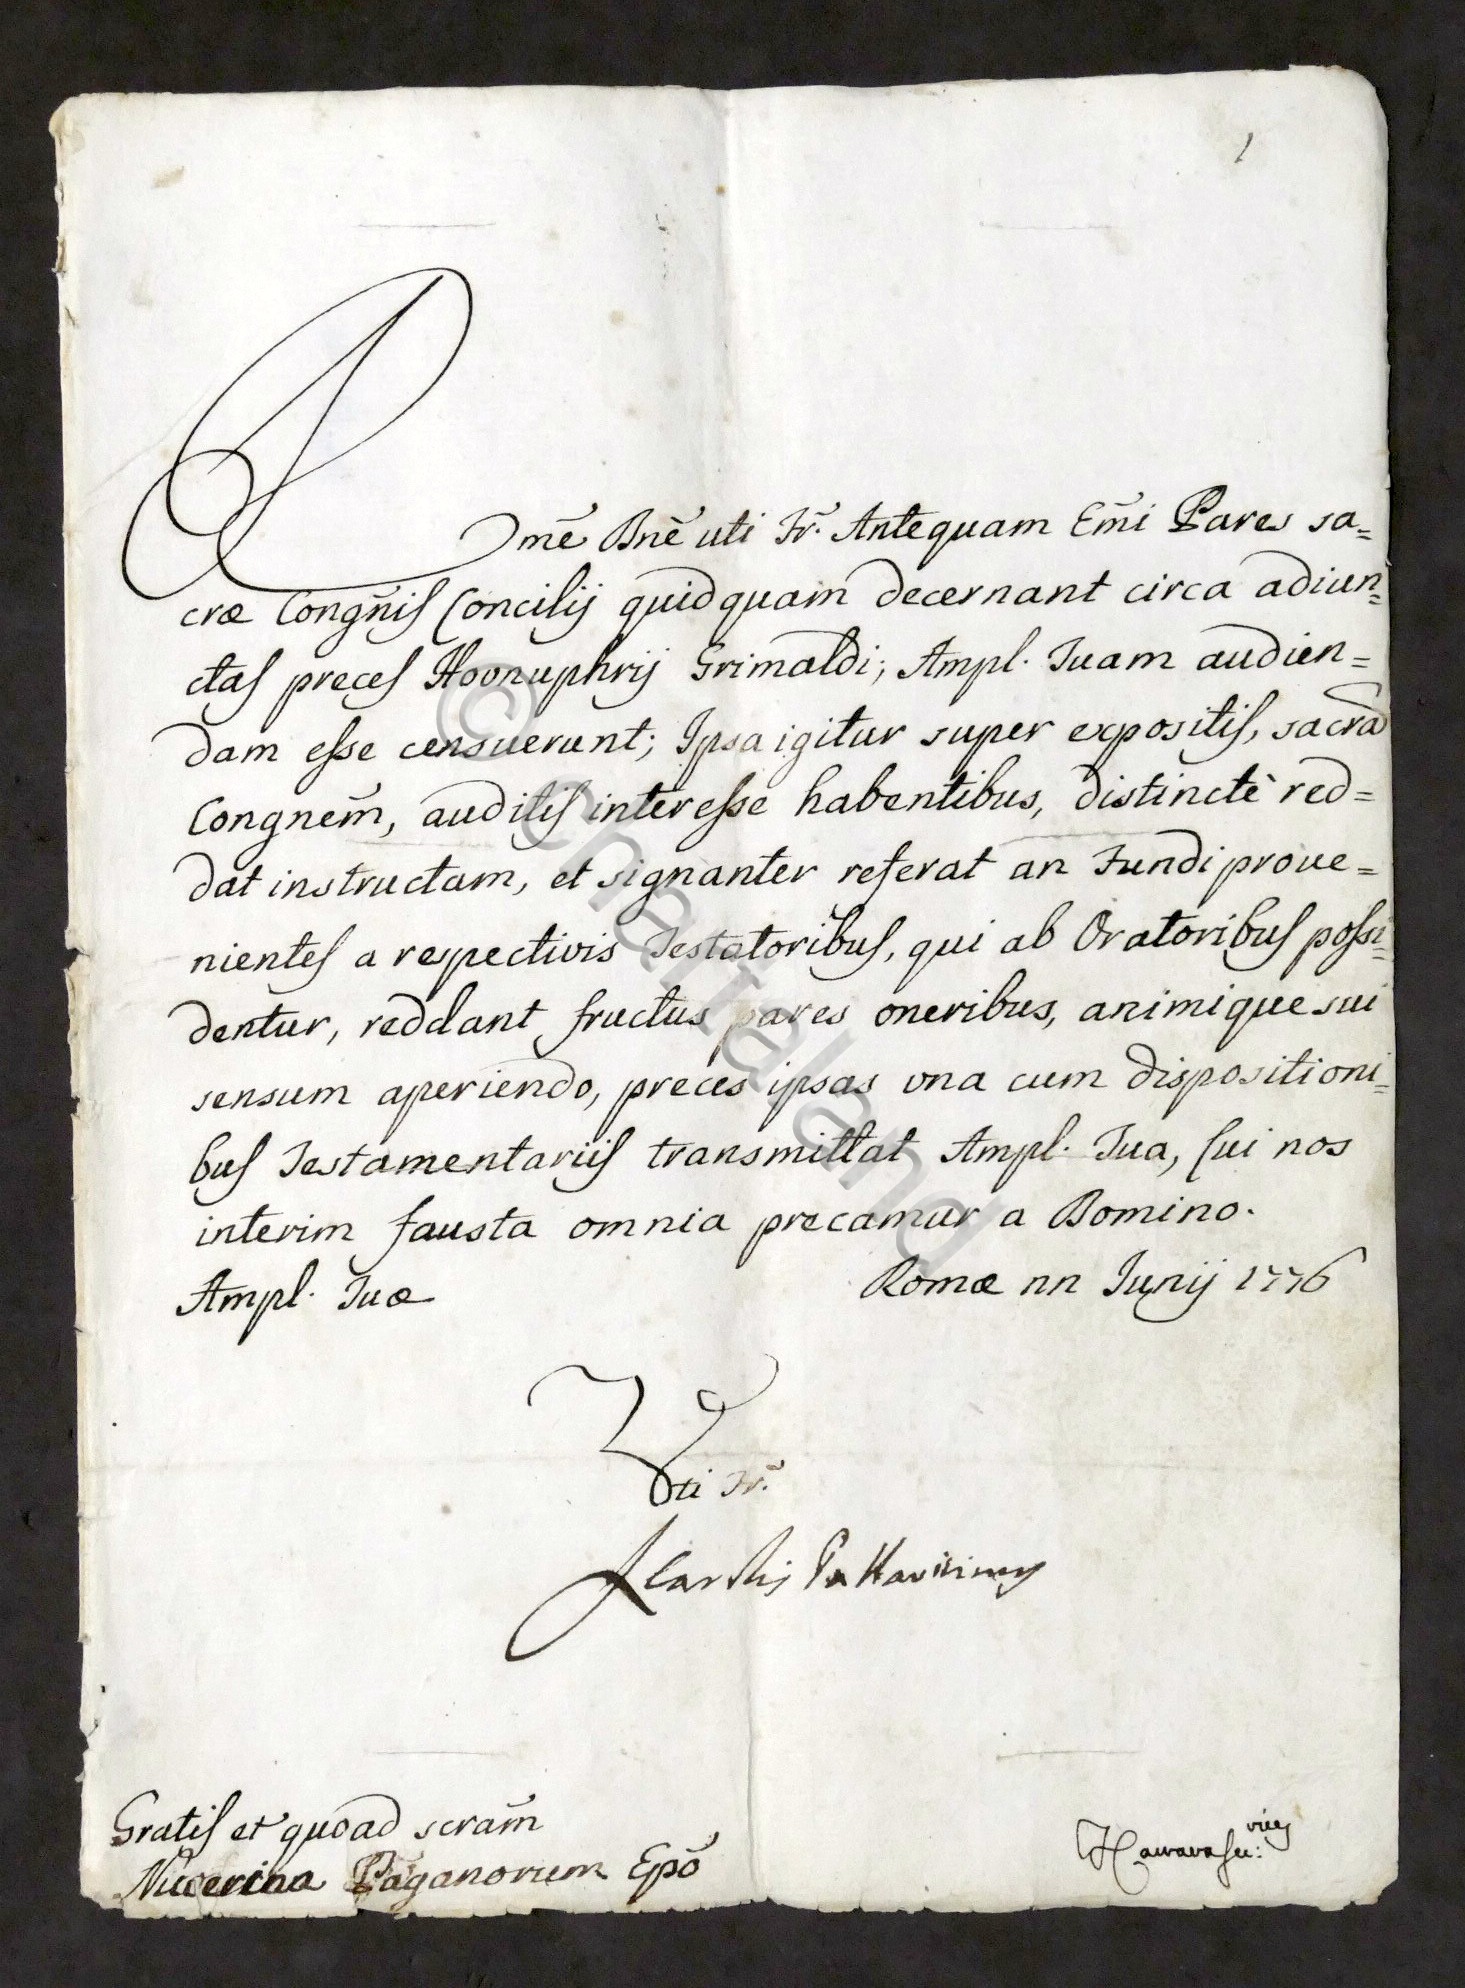 1
Rme Bne uti Fr. Antequam Emi Patres sa=
cræ Congnis Concilij quidquam decernant circa adiun=
ctas preces Honuphrij Grimaldi; Ampl. Tuam audien=
dam esse censuerunt; Ipsa igitur super expositis, sacra
Congnem, auditis interesse habentibus, distinctè red=
dat instructam, et signanter referat an Fundi proue=
nientes a respectivis Testatoribus, qui ab Oratoribus possi=
dentur, reddant fructus pares oneribus, animique sui
sensum aperiendo, preces ipsas una cum dispositioni=
bus Testamentariis transmittat Ampl. Tua, Cui nos
interim fausta omnia precamur a Domino.
Ampl. Tuæ Romæ nn Iunij 1776
Uti Fr.
Cardlis Pallavicinus
Gratis et quoad scram
Nucerina Paganorum Epo
© Chartaland